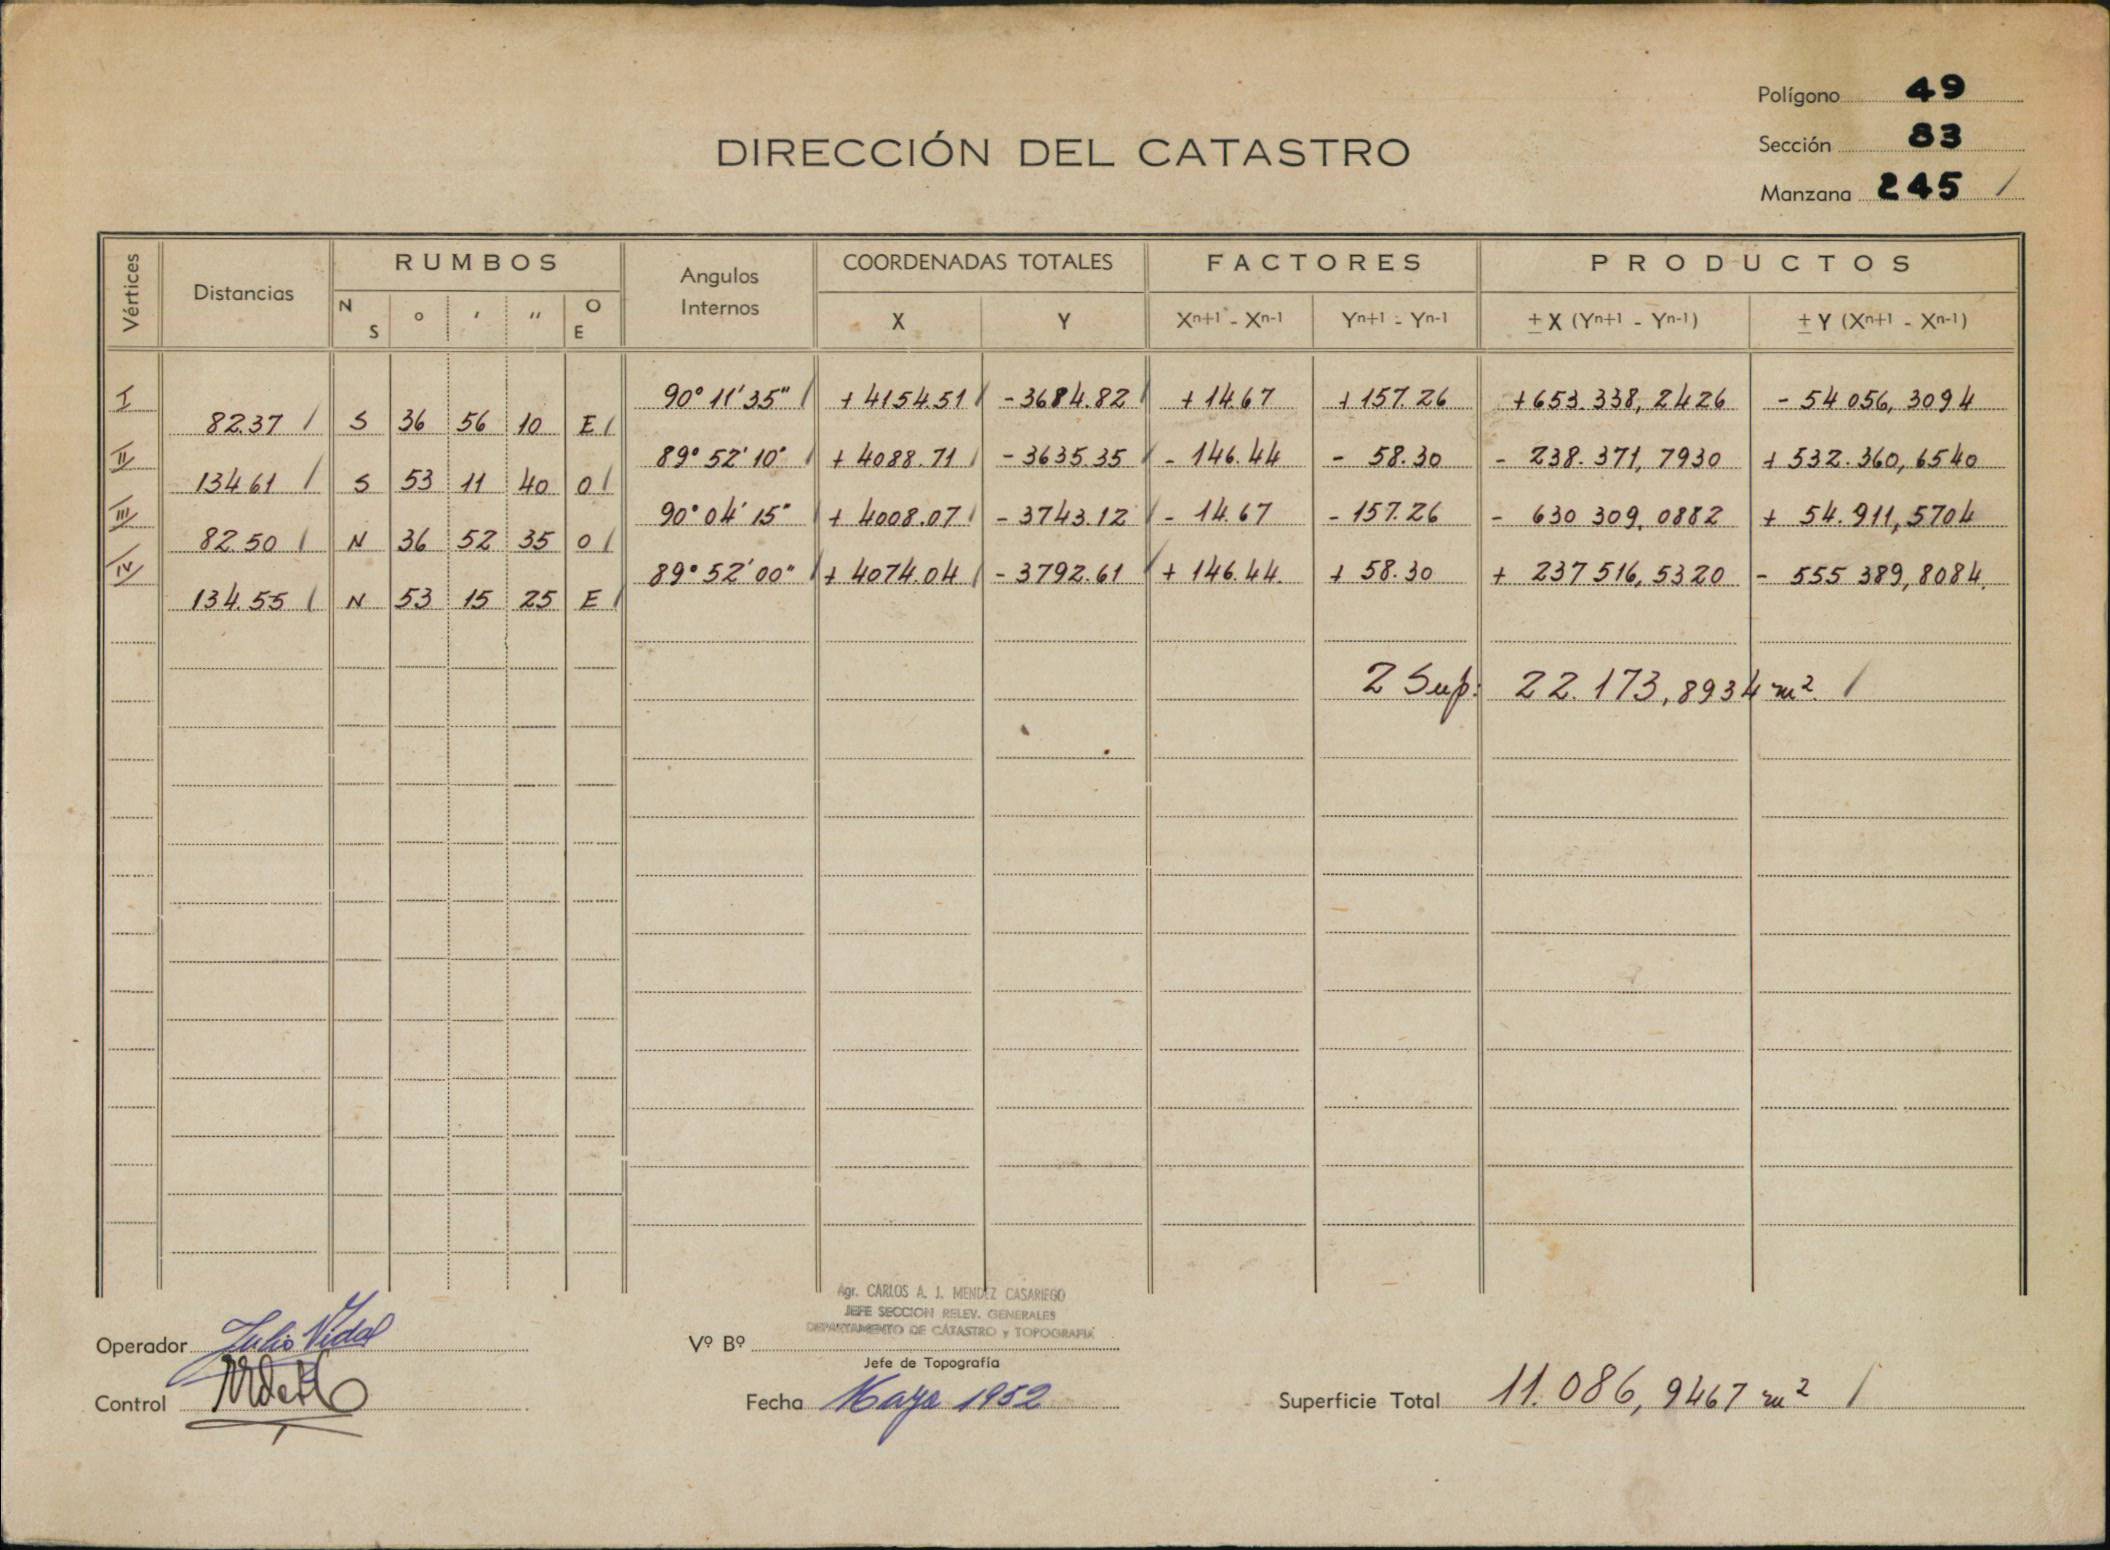 Polígono 49
Sección 83
Manzana 245 /
DIRECCIÓN DEL CATASTRO
Vértices Distancias RUMBOS Angulos Internos COORDENADAS TOTALES FACTORES PRODUCTOS
N S ° ' " O E X Y Xn+1 - Xn-1 Yn+1 - Yn-1 ± X (Yn+1 - Yn-1) ± Y (Xn+1 - Xn-1)
I 90° 11' 35" / + 4154.51 / - 3684.82 / + 14.67 + 157.26 + 653.338,2426 - 54 056,3094
82.37 / S 36 56 10 E /
II 89° 52' 10" / + 4088.71 / - 3635.35 / - 146.44 - 58.30 - 238.371,7930 + 532.360,6540
134.61 / S 53 11 40 O /
III 90° 04' 15" + 4008.07 / - 3743.12 / - 14.67 - 157.26 - 630 309,0882 + 54.911,5704
82.50 / N 36 52 35 O /
IV 89° 52' 00" / + 4074.04 / - 3792.61 / + 146.44 + 58.30 + 237 516,5320 - 555 389,8084
134.55 / N 53 15 25 E /
2 Sup: 22.173,8934 m² /
Agr. CARLOS A. J. MENDEZ CASARIEGO
JEFE SECCION RELEV. GENERALES
DEPARTAMENTO DE CATASTRO y TOPOGRAFIA
Operador Julio Vidal
Vº Bº
Jefe de Topografía
Control
Fecha Mayo 1952
Superficie Total 11.086,9467 m² /